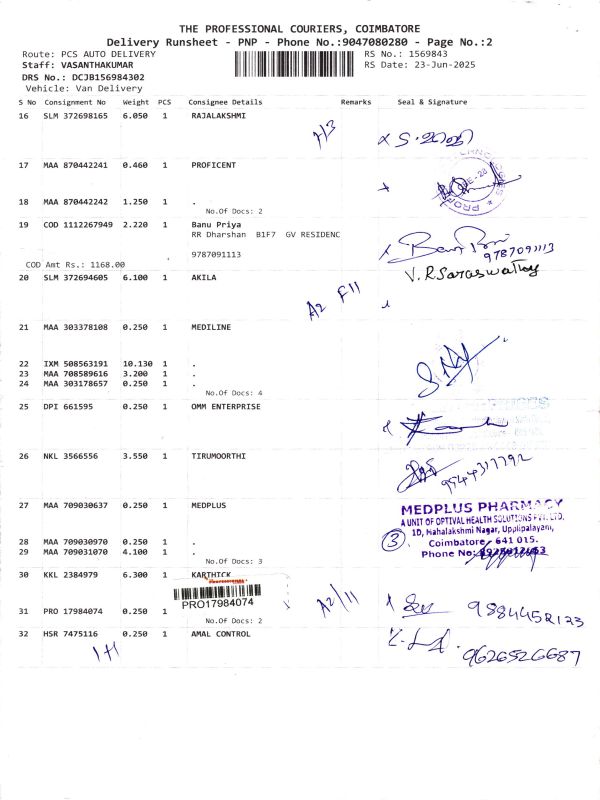 THE PROFESSIONAL COURIERS, COIMBATORE
Delivery Runsheet - PNP - Phone No.:9047080280 - Page No.:2
Route: PCS AUTO DELIVERY RS No.: 1569843
Staff: VASANTHAKUMAR RS Date: 23-Jun-2025
DRS No.: DCJB156984302
Vehicle: Van Delivery
S No Consignment No Weight PCS Consignee Details Remarks Seal & Signature
16 SLM 372698165 6.050 1 RAJALAKSHMI
17 MAA 870442241 0.460 1 PROFICENT
18 MAA 870442242 1.250 1 .
No.Of Docs: 2
19 COD 1112267949 2.220 1 Banu Priya
RR Dharshan B1F7 GV RESIDENC
9787091113
9787091113
COD Amt Rs.: 1168.00
V.R.Saraswathy
20 SLM 372694605 6.100 1 AKILA
A2 F11
21 MAA 303378108 0.250 1 MEDILINE
22 IXM 508563191 10.130 1 .
23 MAA 708589616 3.200 1 .
24 MAA 303178657 0.250 1 .
No.Of Docs: 4
25 DPI 661595 0.250 1 OMM ENTERPRISE
26 NKL 3566556 3.550 1 TIRUMOORTHI
9944317792
27 MAA 709030637 0.250 1 MEDPLUS
MEDPLUS PHARMACY
A UNIT OF OPTIVAL HEALTH SOLUTIONS PVT. LTD.
1D, Mahalakshmi Nagar, Upplipalayam,
Coimbatore - 641 015.
Phone No:
3
28 MAA 709030970 0.250 1 .
29 MAA 709031070 4.100 1 .
No.Of Docs: 3
30 KKL 2384979 6.300 1 KARTHICK
PRO17984074
A2/11
9884458123
31 PRO 17984074 0.250 1
No.Of Docs: 2
32 HSR 7475116 0.250 1 AMAL CONTROL
9626526687